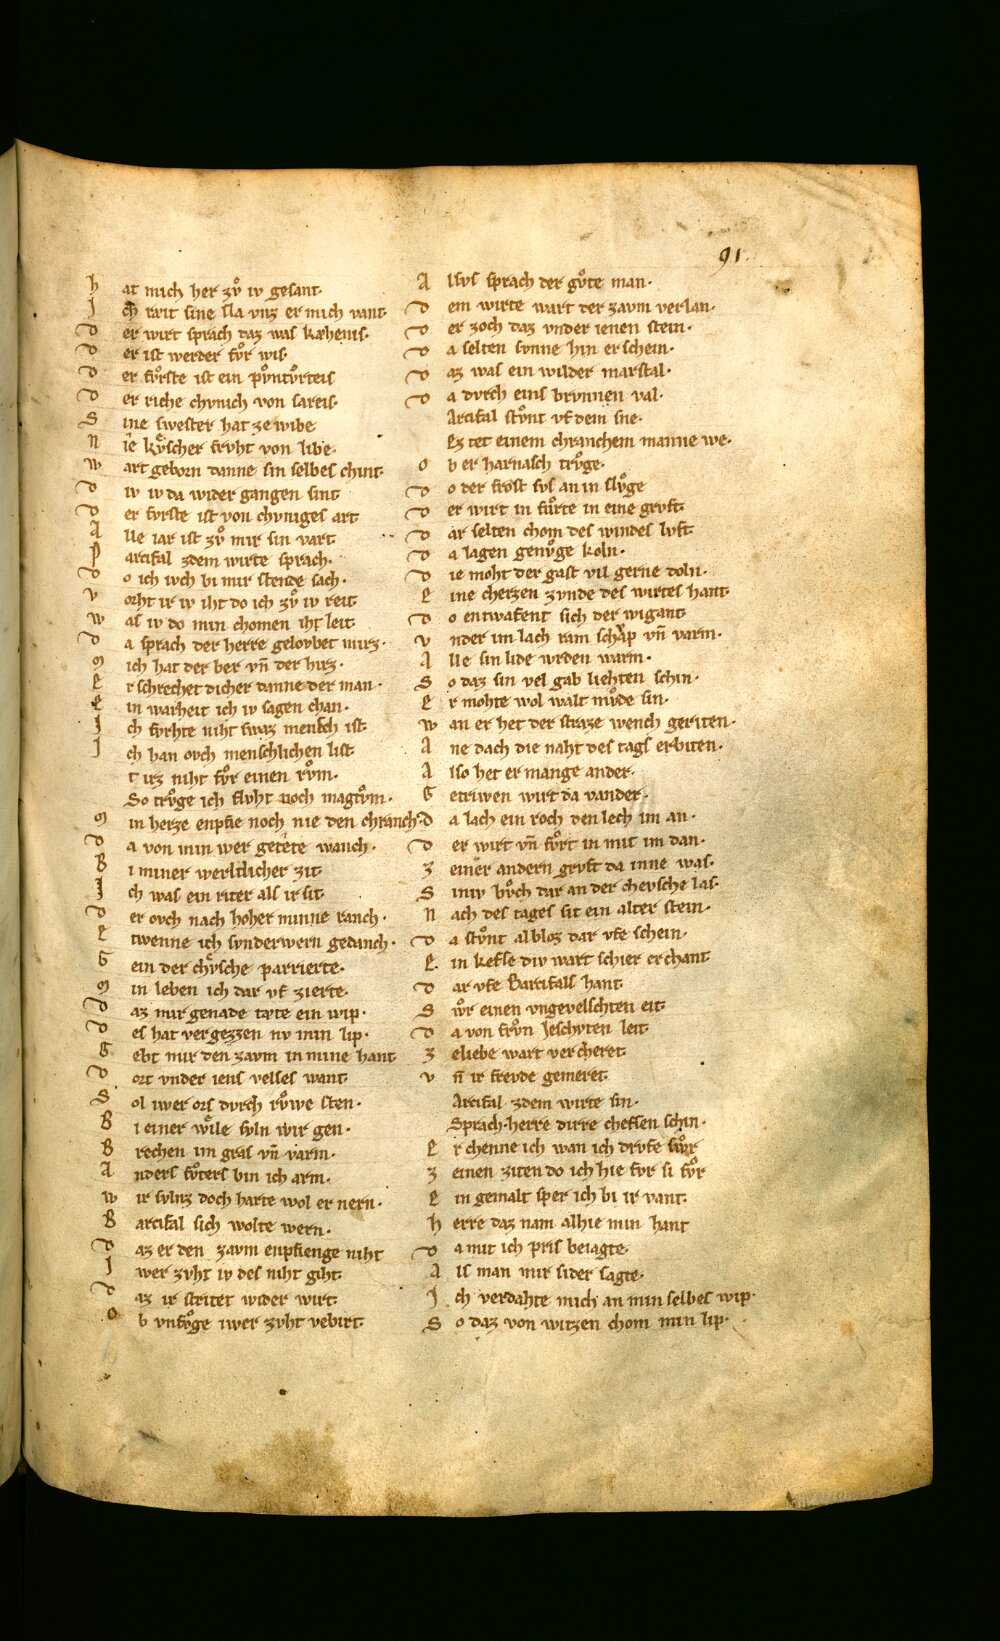 91.
hat mich her zvͦ iv gesant·
Ich rait sine sla vnz er mich vant·
Der wirt sprach daz was kæhenis·
Der ist werder fvͦr wis·
Der fvͦrste ist ein pvͦntvͦrteis
Der riche chvnich von sareis·
Sine swester hat ze wibe
Nie kvͤscher frvht von libe·
wart geborn danne sin selbes chint·
Div iv da wider gangen sint
Der fvrste ist von chvniges art
Alle iar ist zvͦ mir sin vart·
Parcifal zdem wirte sprach·
Do ich ivch bi mir stende sach·
vorht ir iv iht do ich zvͦ iv reit
was iv do min chomen iht leit·
Da sprach der herre gelovbet mirz·
mich hat der ber vn̄ der hirz·
Erschrechet dicher danne der man·
Ein warheit ich iv sagen chan·
Ich fvrhte niht swaz mensch ist
Ich han ovch menschlichen list·
t irz niht fvͦr einen rvͦm·
So trvͦge ich flvht noch magtvͦm·
min herze enpfie noch nie den chranch·
Da von min wer getete wanch·
Bi miner werltlicher zit·
Ich was ein riter als ir sit·
Der ovch nach hoher minne ranch·
Etwenne ich svnderwern gedanch·
Gein der chvͤsche parrierte·
min leben ich dar vf zierte·
Daz mir genade tæte ein wip·
Des hat vergezzen nv min lip·
Gebt mir den zavm in mine hant
Dort vnder iens velses want·
Sol iwer ors dvrch rvͦwe sten·
Bi einer wͤile svln wir gen·
Brechen im gras vn̄ varm·
Anders fvͦters bin ich arm·
wir svlnz doch harte wol er nern·
Barcifal sich wolte wern·
Daz er den zavm enpfienge niht
Iwer zvht iv des niht giht·
Daz ir stritet wider wirt·
Ob vnfvͦge iwer zvht vebirt·
Alsvs sprach der gvͦte man·
Dem wirte wart der zavm verlan·
Der zoch daz vnder ienen stein·
Da selten svnne hin erschein·
Daz was ein wilder marstal·
Da dvrch eins brvnnen val·
Arcifal stvͦnt vf dem sne·
Ez tet einem chranchem manne we·
Ob er harnasch trvͦge·
Do der frost svs an in slvͦge
Der wirt in fvͦrte in eine grvft·
Dar selten chom des windes lvft·
Da lagen genvͦge koln·
Die moht der gast vil gerne doln·
Eine cherzen zvnde des wirtes hant
Do entwafent sich der wigant
vnder im lach ram schap vn̄ varm·
Alle sin lide wrden warm·
So daz sin vel gab liehten schin·
Er mohte wol walt mvͦde sin·
wan er het der straze wench geriten·
Ane dach die naht des tags erbiten·
Also het er mange ander·
Getriwen wirt da vander·
Da lach ein roch den lech im an·
Der wirt vn̄ fvͦrt in mit im dan·
Zeiner andern grvft da inne was·
Siniv bvͦch dar an der chevsche las·
Nach des tages sit ein alter stein·
Da stvͦnt al bloz dar vfe schein·
Ein kefse div wart schier er chant
Dar vfe Barcifals hant
Swͦr einen vngevelschten eit·
Da von frvͦn Jeschvten leit
Zeliebe wart vercheret
vn̄ ir frevde gemeret·
Arcifal zdem wirte sin·
Sprach·herre dirre cheffen schin·
Er chenne ich wan ich drvfe swͦr
Zeinen ziten do ich hie fvr si fvͦr
Ein gemalt sper ich bi ir vant·
herre daz nam alhie min hant
Da mit ich pris beiagte·
Als man mir sider sagte·
Ich verdahte mich an min selbes wip·
So daz von witzen chom min lip·